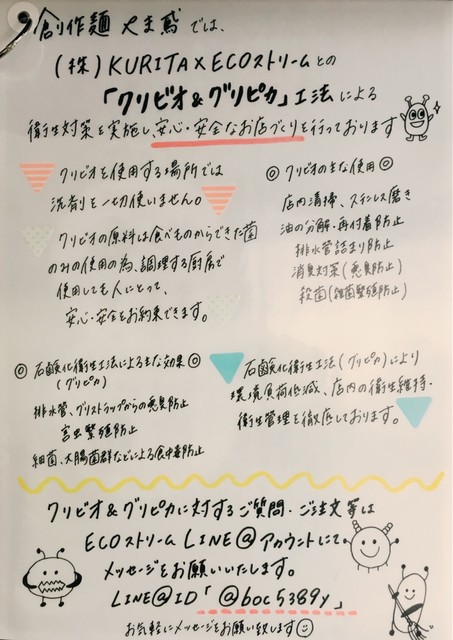 創作麺 やま鳶 では、
(株)KURITA×ECOストリームとの
「クリビオ&グリピカ」工法による
衛生対策を実施し、安心・安全なお店づくりを行っております
クリビオを使用する場所では
洗剤を一切使いません。
クリビオの原料は食べものからできた菌
のみの使用の為、調理する厨房で
使用しても人にとって、
安心・安全をお約束できます。
◎ クリビオの主な使用 ◎
店内清掃、ステンレス磨き
油の分解・再付着防止
排水管詰まり防止
消臭対策(悪臭防止)
殺菌(雑菌繁殖防止)
◎ 石鹸化衛生工法による主な効果 ◎
(グリピカ)
排水管、グリストラップからの悪臭防止
害虫繁殖防止
細菌、大腸菌群などによる食中毒防止
石鹸化衛生工法(グリピカ)により
環境負荷低減、店内の衛生維持・
衛生管理を徹底しております。
クリビオ&グリピカに対するご質問・ご注文等は
ECOストリーム LINE@アカウントにて
メッセージをお願いいたします。
LINE@ID「@boc5389y」
お気軽にメッセージをお願い致します☺